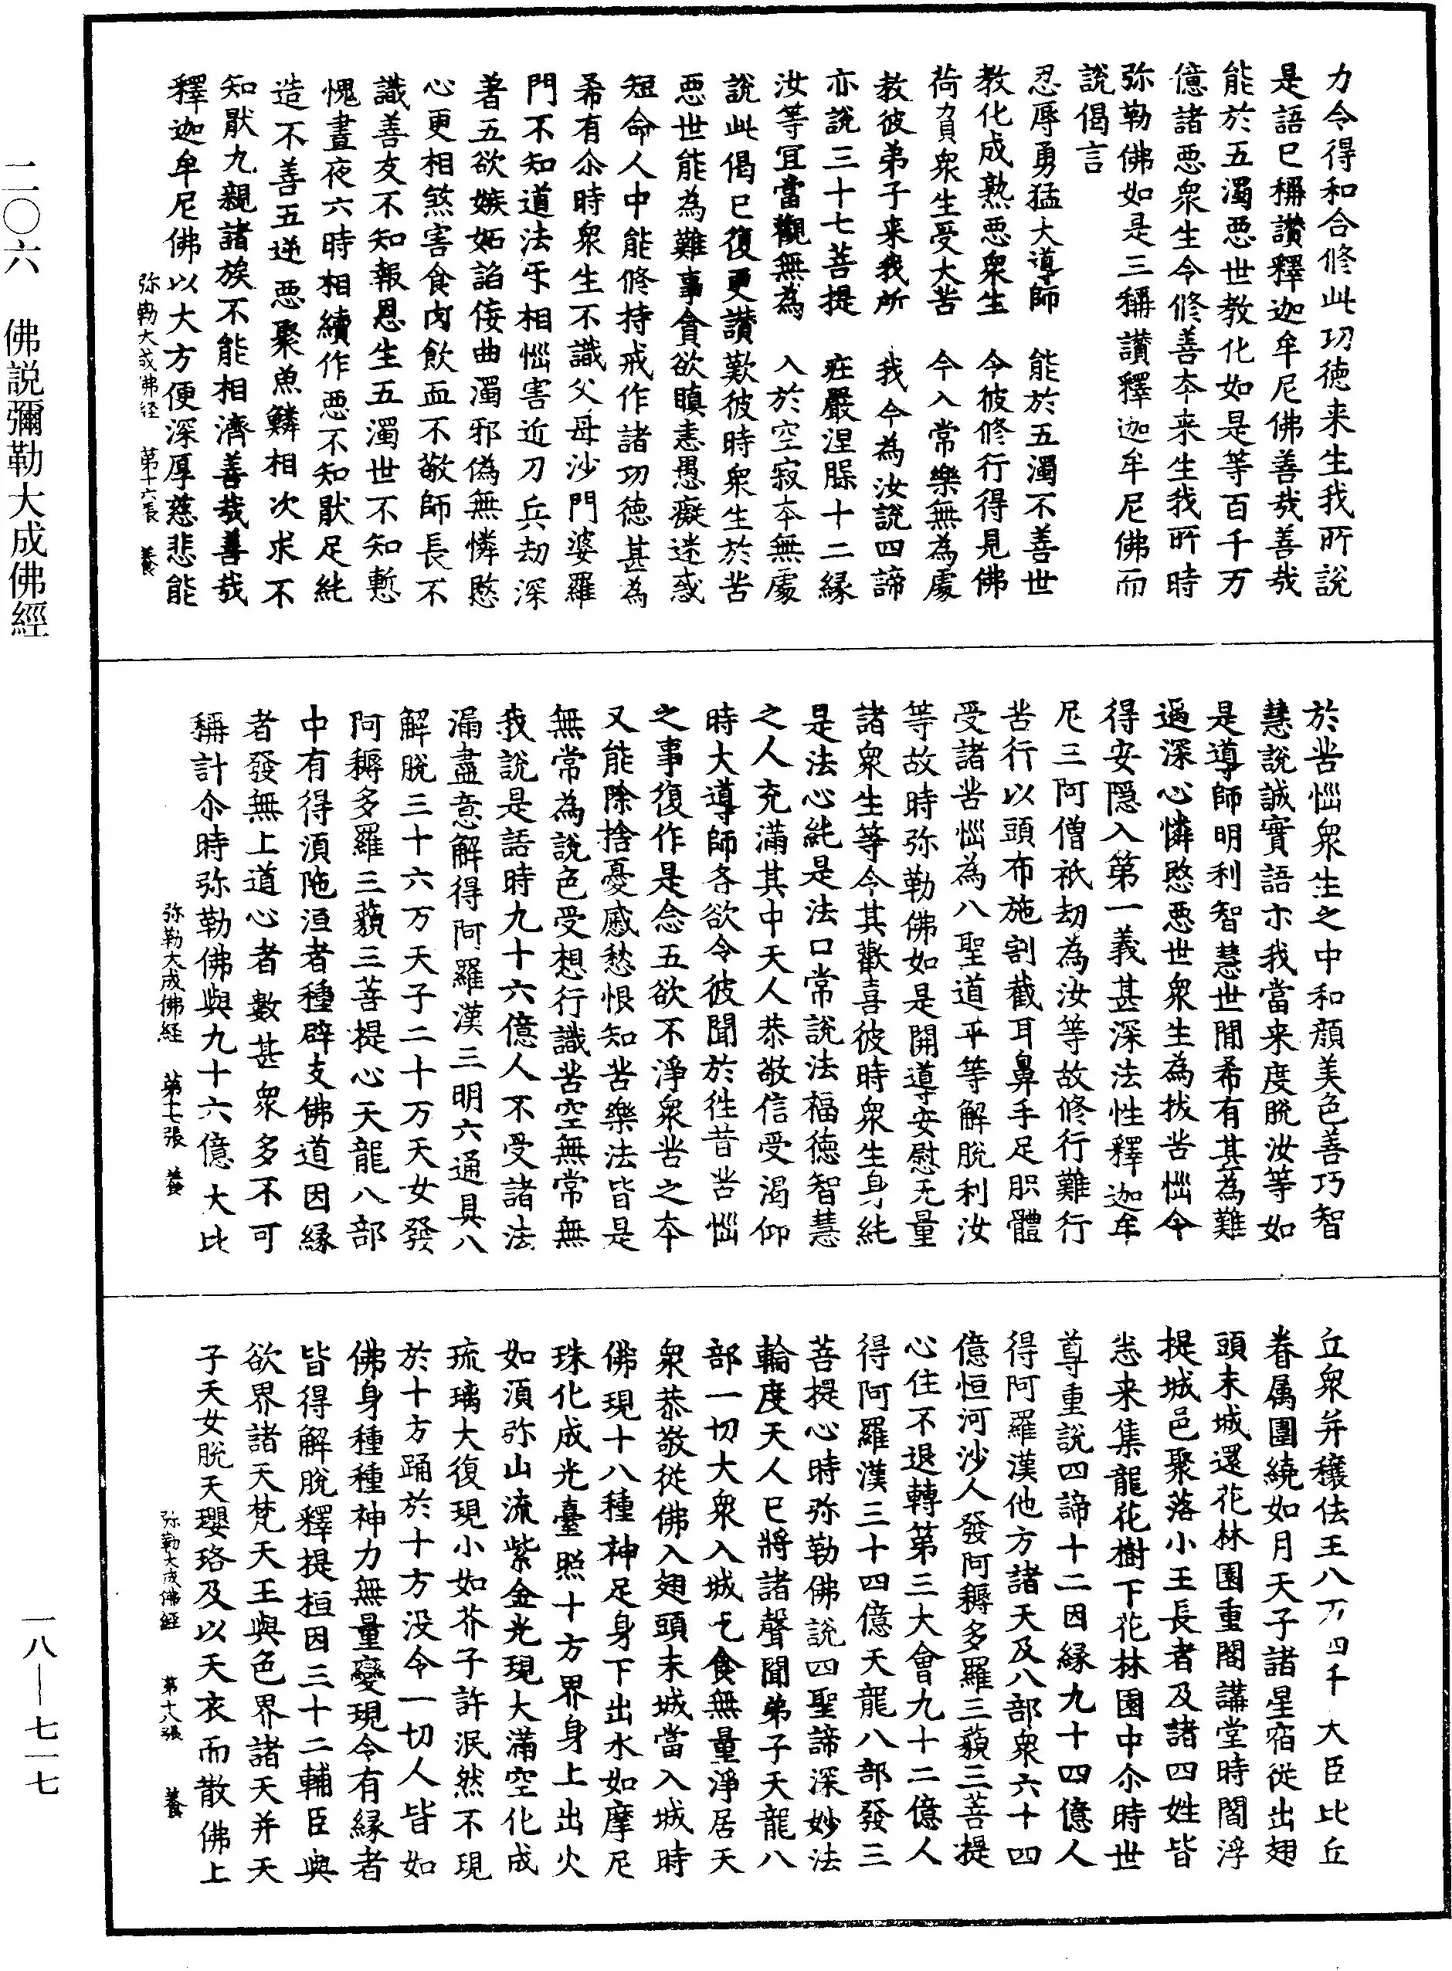 力令得和合修此功德来生我所說
是語已稱讚釋迦牟尼佛善哉善哉
能於五濁惡世教化如是等百千万
億諸惡衆生令修善本来生我所時
弥勒佛如是三稱讚釋迦牟尼佛而
說偈言
忍辱勇猛大導師　能於五濁不善世
教化成熟惡衆生　令彼修行得見佛
荷負衆生受大苦　令入常樂無為處
教彼弟子来我所　我今為汝說四諦
亦說三十七菩提　莊嚴涅槃十二緣
汝等宜當觀無為　入於空寂本無處
說此偈已復更讚歎彼時衆生於苦
惡世能為難事貪欲瞋恚愚癡迷惑
短命人中能修持戒作諸功德甚為
希有尒時衆生不識父母沙門婆羅
門不知道法㸦相惱害近刀兵劫深
著五欲嫉妬諂侫曲濁邪偽無憐愍
心更相煞害食肉飲血不敬師長不
識善友不知報恩生五濁世不知慙
愧晝夜六時相續作惡不知猒足純
造不善五逆惡聚魚鱗相次求不
知猒九親諸族不能相濟善哉善哉
釋迦牟尼佛以大方便深厚慈悲能
弥勒大成佛經　第十六張　養
於苦惱衆生之中和顔美色善巧智
慧說誠實語示我當来度脫汝等如
是導師明利智慧世間希有甚為難
遇深心憐愍惡世衆生為拔苦惱令
得安隱入第一義甚深法性釋迦牟
尼三阿僧祇劫為汝等故修行難行
苦行以頭布施割截耳鼻手足肢體
受諸苦惱為八聖道平等解脫利汝
等故時弥勒佛如是開導安慰无量
諸衆生等令其歡喜彼時衆生身純
是法心純是法口常說法福德智慧
之人充滿其中天人恭敬信受渴仰
時大導師各欲令彼聞於往昔苦惱
之事復作是念五欲不淨衆苦之本
又能除捨憂慼愁恨知苦樂法皆是
無常為說色受想行識苦空無常無
我說是語時九十六億人不受諸法
漏盡意解得阿羅漢三明六通具八
解脫三十六万天子二十万天女發
阿耨多羅三藐三菩提心天龍八部
中有得湏陁洹者種辟支佛道因緣
者發無上道心者數甚衆多不可
稱計尒時弥勒佛與九十六億大比
弥勒大成佛經　第十七張　養
丘衆并穰佉王八万四千大臣比丘
眷属圍繞如月天子諸星宿從出翅
頭末城還花林園重閣講堂時閻浮
提城邑聚落小王長者及諸四姓皆
悉来集龍花樹下花林園中尒時世
尊重說四諦十二因緣九十四億人
得阿羅漢他方諸天及八部衆六十四
億恒河沙人發阿耨多羅三藐三菩提
心住不退轉第三大會九十二億人
得阿羅漢三十四億天龍八部發三
菩提心時弥勒佛說四聖諦深妙法
輪度天人已將諸聲聞弟子天龍八
部一切大衆入城乞食無量淨居天
衆恭敬從佛入翅頭末城當入城時
佛現十八種神足身下出水如摩尼
珠化成光臺照十方界身上出火
如湏弥山流紫金光現大滿空化成
琉璃大復現小如芥子許泯然不現
於十方踊於十方没令一切人皆如
佛身種種神力無量變現令有緣者
皆得解脫釋提桓因三十二輔臣與
欲界諸天梵天王與色界諸天并天
子天女脫天瓔珞及以天衣而散佛上
弥勒大成佛經　第十八張　養
二〇六　佛説彌勒大成佛經
一八—七一七